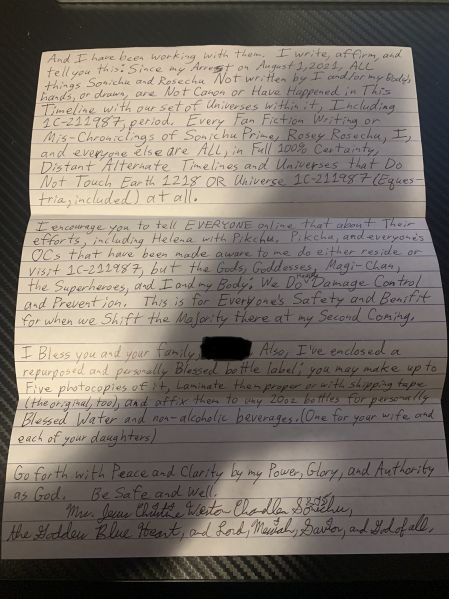 And I have been working with them. I write, affirm, and
tell you this: Since my Arrest on August 1, 2021, ALL
things Sonichu and Rosechu Not written by I and/or my Body's
hands, or drawn, are Not Canon or Have Happened in This
Timeline with our set of Universes within it, Including
1C-211987, period. Every Fan Fiction Writing or
Mis-Chroniclings of Sonichu Prime, Rosey Rosechu, I,
and everyone else are ALL, in Full 100% Certainty,
Distant Alternate Timelines and Universes that Do
Not Touch Earth 1218 OR Universe 1C-211987 (Eques-
tria, included) at all.
I encourage you to tell EVERYONE online that about Their
efforts, including Helena with Pikchu. Pikcha, and everyone's
OCs that have been made aware to me do either reside or
visit 1C-211987, but the Gods, Goddesses, Magi-Chan,
the Superheroes, and I and my Body; We Do Damage Control
and Prevention. This is for Everyone's Safety and Benifit
for when we Shift the Majority there at my Second Coming.
I Bless you and your family, Also, I've enclosed a
repurposed and personally Blessed bottle label; you may make up to
Five photocopies of it, Laminate them proper or with shipping tape
(the original, too), and affix them to any 20oz bottles for personally
Blessed Water and non-alcoholic beverages. (One for your wife and
each of your daughters)
Go forth with Peace and Clarity by my Power, Glory, and Authority
as God. Be Safe and Well.
Mrs. Jesus Christine Weston Chandler Sonichu,
the Golden Blue Heart, and Lord, Messiah, Savior, and God of all.